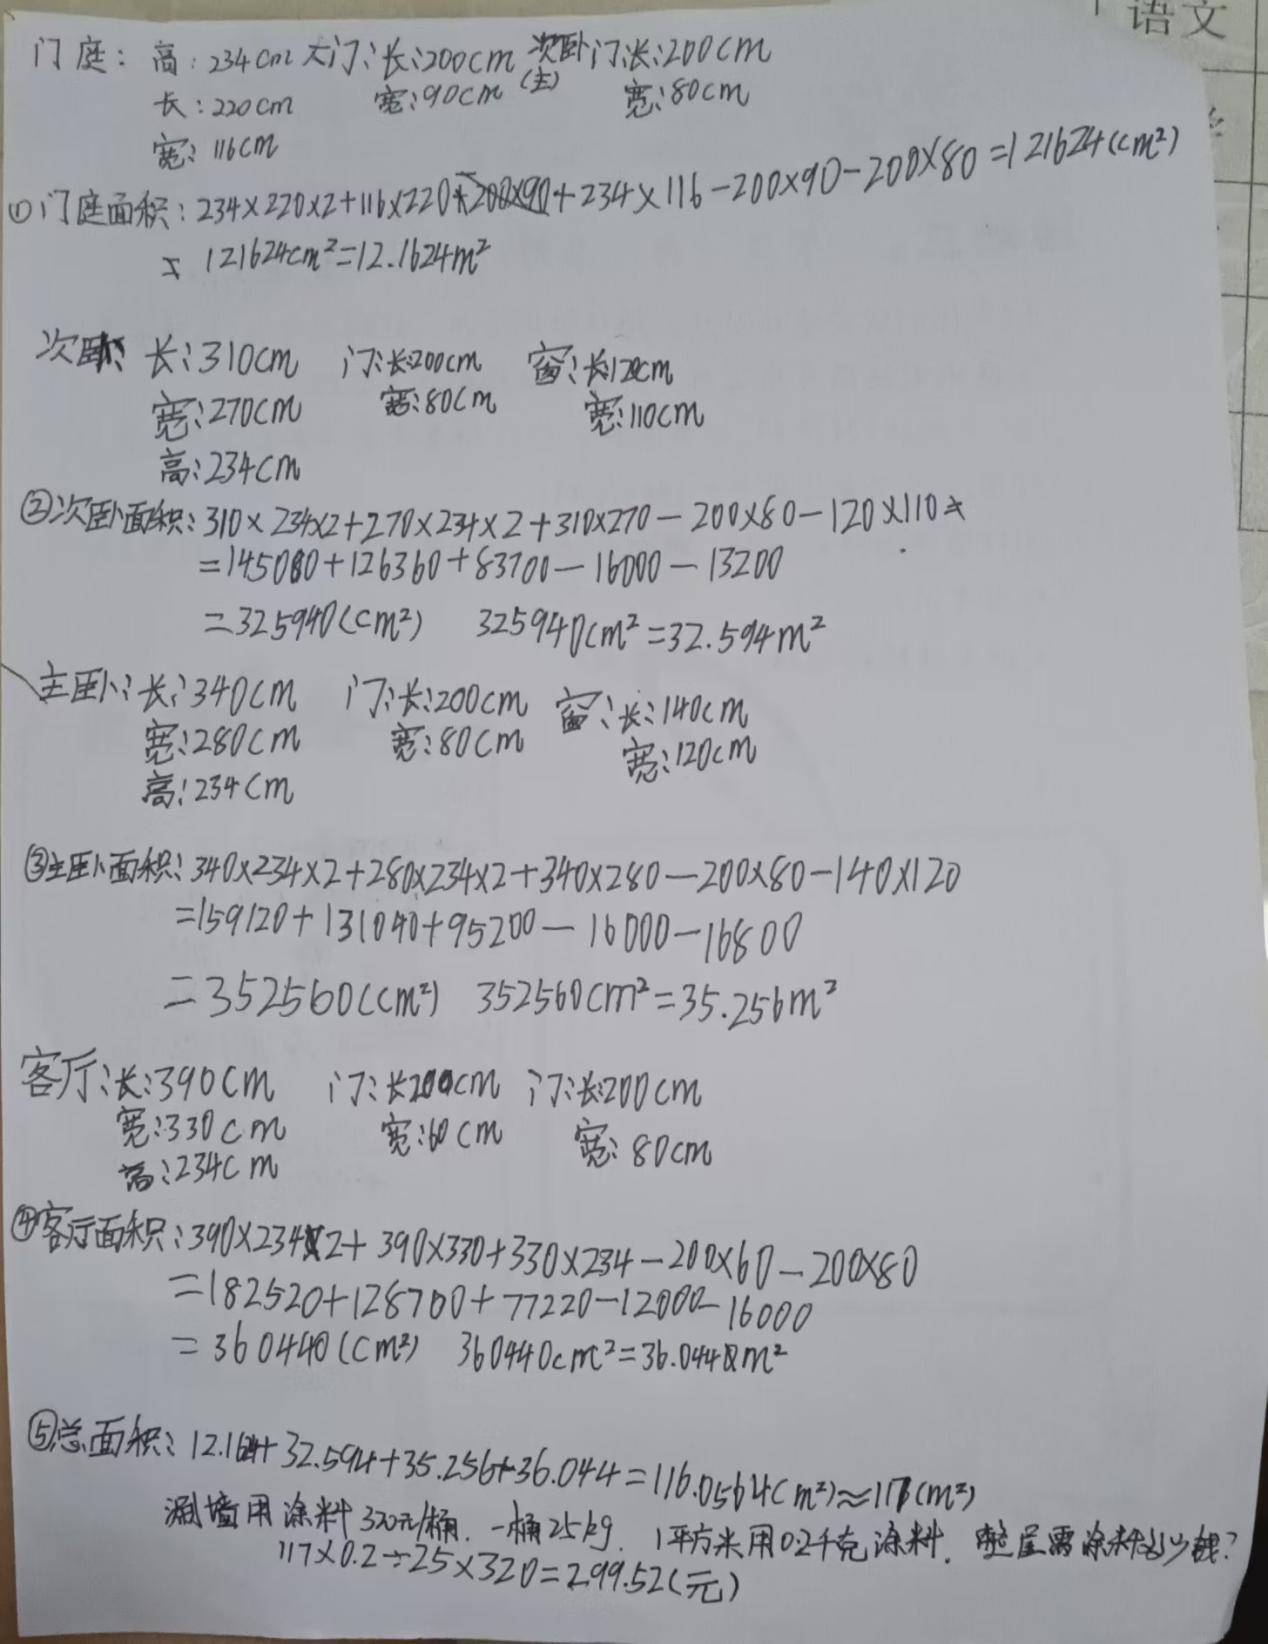 语文
门庭：高：234cm 大门：长：200cm 次卧门：长：200cm
长：220cm 宽：90cm （主） 宽：80cm
宽：116cm
①门庭面积：234×220×2+116×220+234×116－200×90－200×80=121624(cm²)
= 121624cm²=12.1624m²
次卧：长：310cm 门：长：200cm 窗：长：120cm
宽：270cm 宽：80cm 宽：110cm
高：234cm
②次卧面积：310×234×2+270×234×2+310×270－200×80－120×110
=145080+126360+83700－16000－13200
=325940(cm²) 325940cm²=32.594m²
主卧：长：340cm 门：长：200cm 窗：长：140cm
宽：280cm 宽：80cm 宽：120cm
高：234cm
③主卧面积：340×234×2+280×234×2+340×280－200×80－140×120
=159120+131040+95200－16000－16800
=352560(cm²) 352560cm²=35.256m²
客厅：长：390cm 门：长200cm 门：长：200cm
宽：330cm 宽：60cm 宽：80cm
高：234cm
④客厅面积：390×234×2+390×330+330×234－200×60－200×80
=182520+128700+77220－12000－16000
=360440(cm²) 360440cm²=36.044m²
⑤总面积：12.1624+32.594+35.256+36.044=116.0564(m²)≈117(m²)
涮墙用涂料320元/桶．一桶25kg． 1平方米用0.2千克涂料．整屋需涂料多少钱？
117×0.2÷25×320=299.52(元)